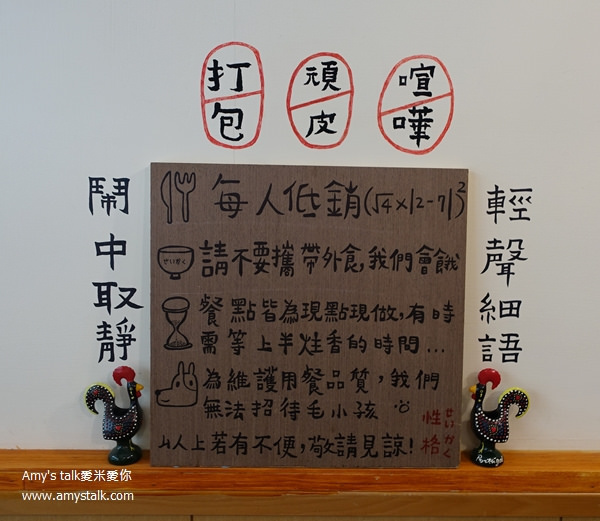 打包
頑皮
喧嘩
鬧中取靜
每人低銷(√4×|2-7|)²
せいかく
請不要攜帶外食,我們會餓
餐點皆為現點現做,有時
需等上半炷香的時間...
為維護用餐品質,我們
無法招待毛小孩
以上若有不便,敬請見諒!
性格
せいかく
輕聲細語
Amy's talk愛米愛你
www.amystalk.com